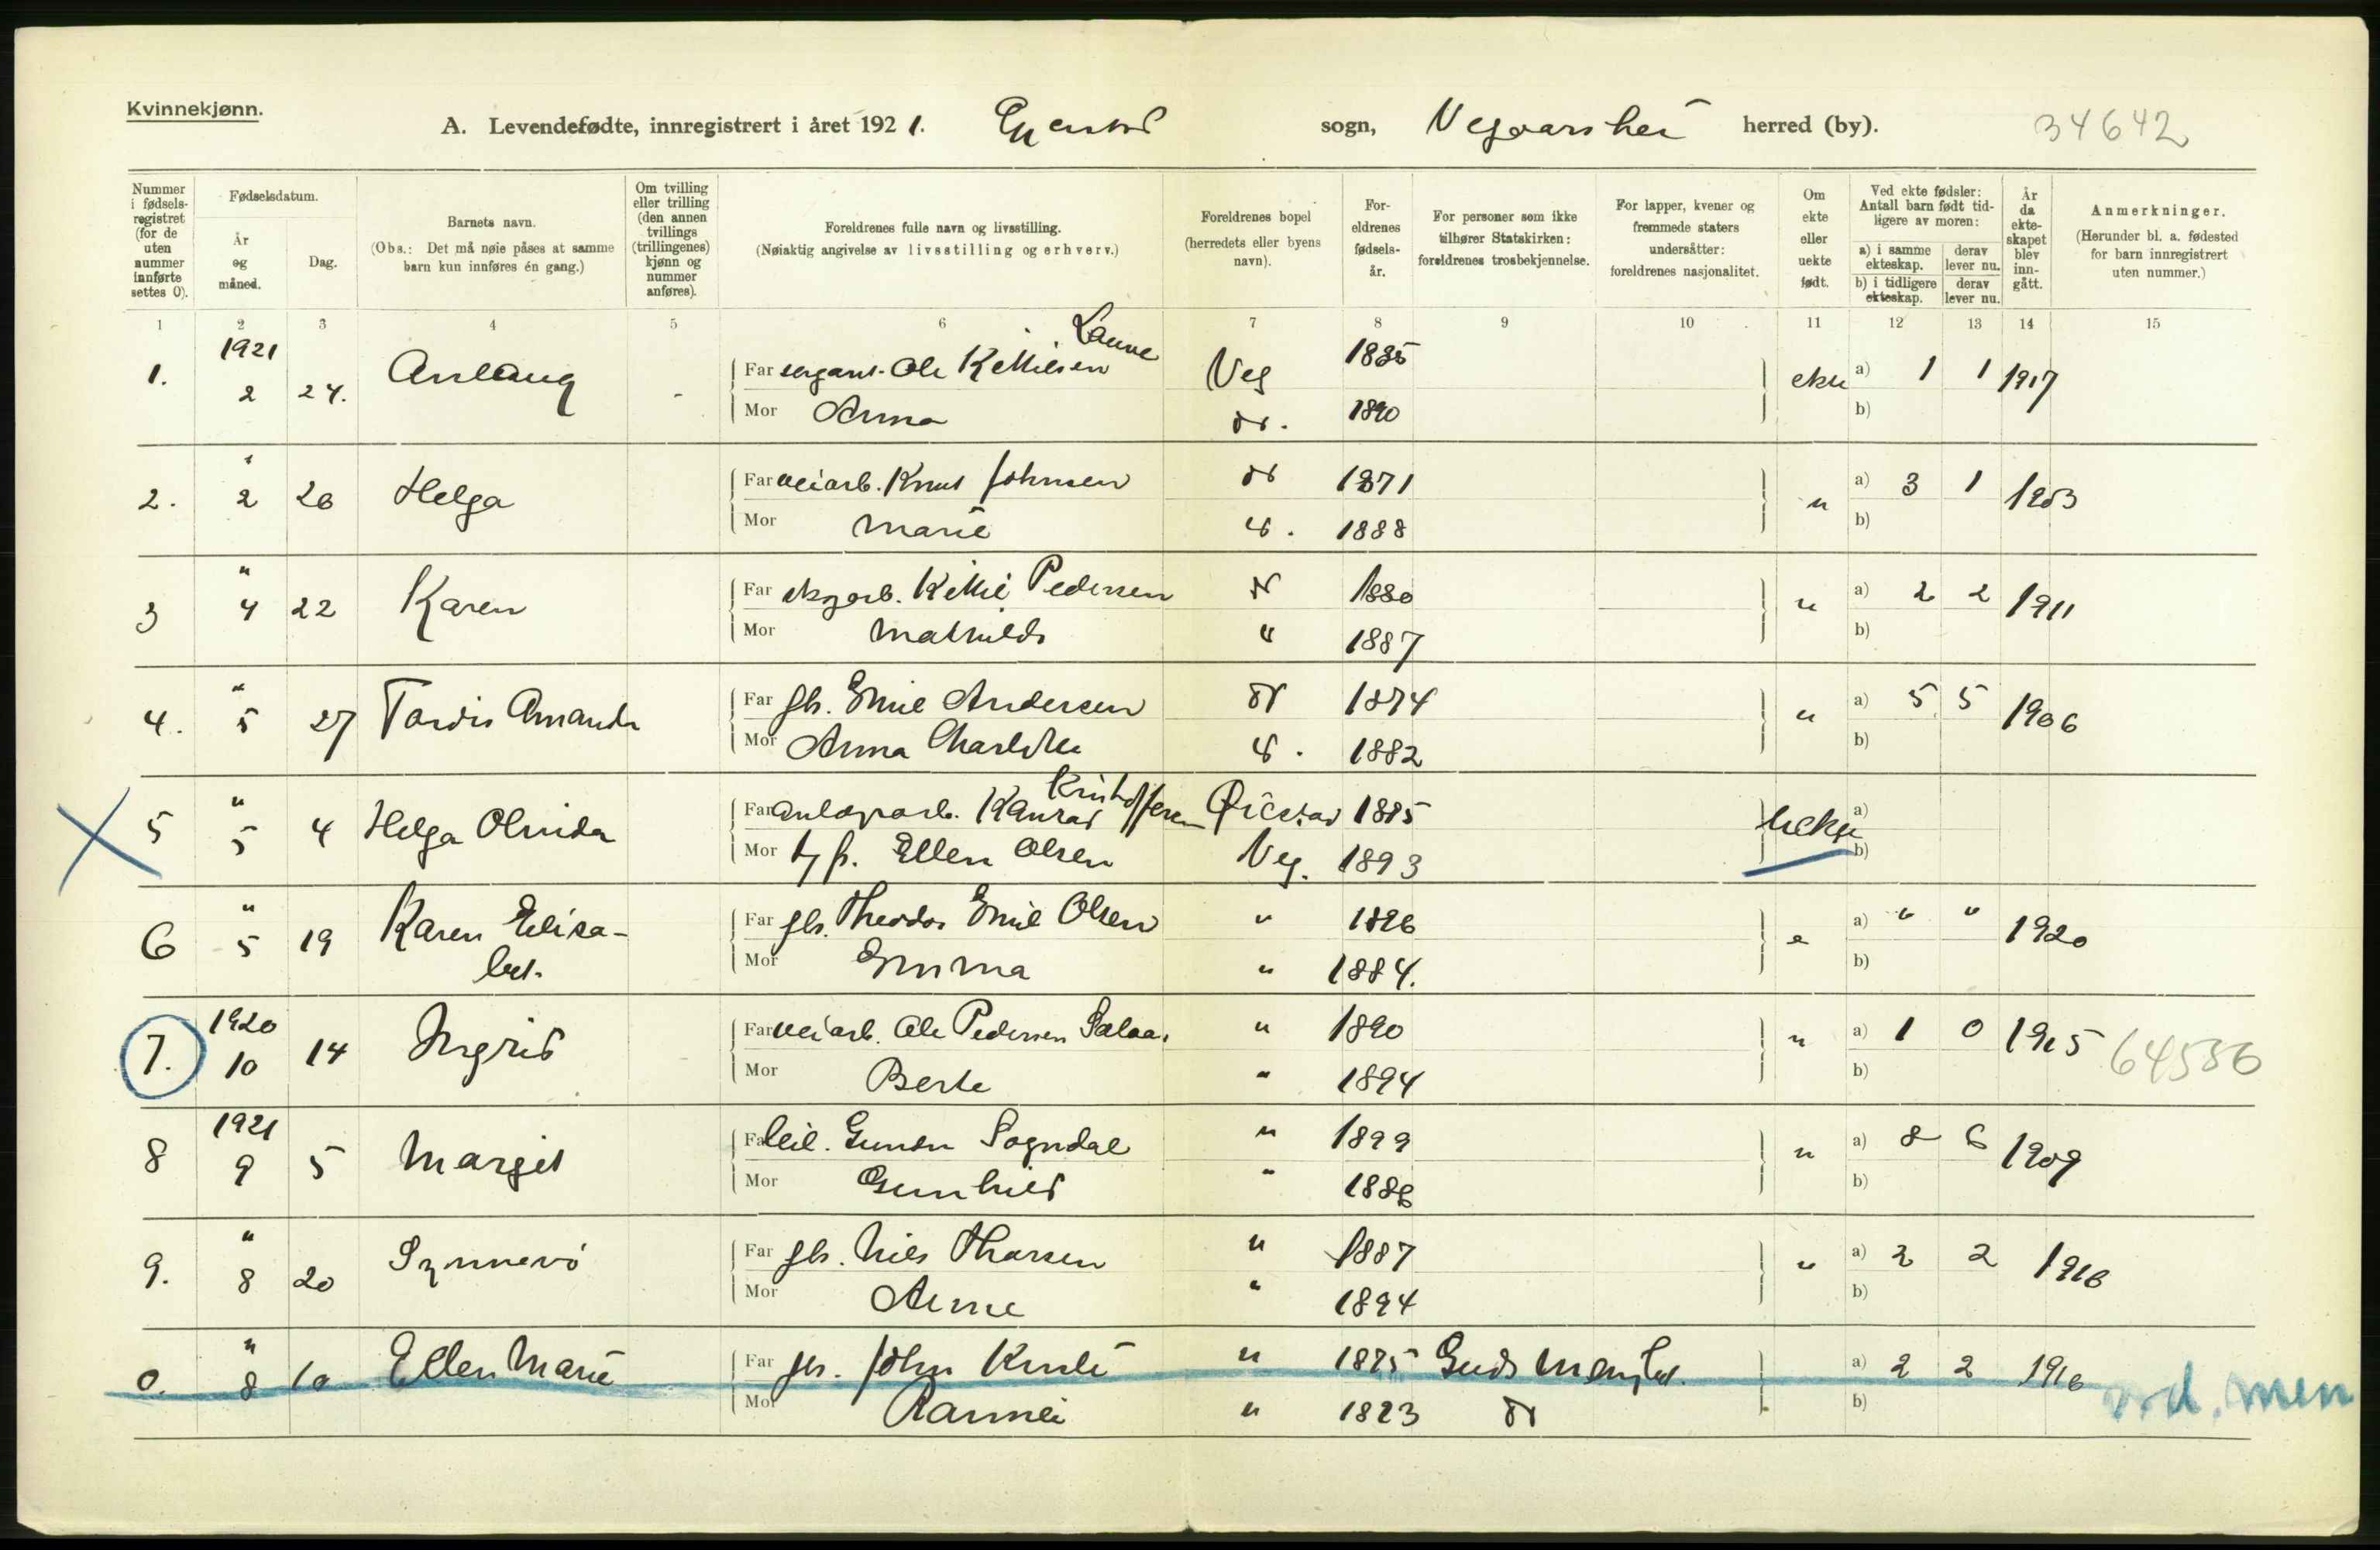 Kvinnekjønn.
A. Levendefødte, innregistrert i året 1921. sogn, Vegaarshei herred (by). 34642
Nummer i fødsels-registret (for de uten nummer innførte settes 0).
Fødselsdatum.
År og måned.
Dag.
Barnets navn.
(Obs.: Det må nøie påses at samme barn kun innføres én gang.)
Om tvilling eller trilling (den annen tvillings (trillingenes) kjønn og nummer anføres).
Foreldrenes fulle navn og livsstilling.
(Nøiaktig angivelse av livsstilling og erhverv.)
Foreldrenes bopel (herredets eller byens navn).
For-eldrenes fødsels-år.
For personer som ikke tilhører Statskirken: foreldrenes trosbekjennelse.
For lapper, kvener og fremmede staters undersåtter: foreldrenes nasjonalitet.
Om ekte eller uekte født.
Ved ekte fødsler: Antall barn født tid-ligere av moren:
a) i samme ekteskap. derav lever nu.
b) i tidligere ekteskap. derav lever nu.
År da ekte-skapet blev inn-gått.
Anmerkninger.
(Herunder bl. a. fødested for barn innregistrert uten nummer.)
1 2 3 4 5 6 7 8 9 10 11 12 13 14 15
1. 1921 2 24. Aslaug - Far sergant. Ole Kittilsen Lauve Veg 1885 ekte a) 1 1 1917
Mor Anna do. 1890 b)
2. " 2 26 Helga Far veiarb. Knut Johnsen do 1871 " a) 3 1 1903
Mor Marie do. 1888 b)
3 " 4 22 Karen Far skogarb. Kittil Pedersen do 1880 " a) 2 2 1911
Mor Mathilde " 1887 b)
4. " 5 27 Tordis Amanda Far gbr. Emil Andersen do 1874 " a) 5 5 1906
Mor Anna Charlotte do. 1882 b)
5 " 5 4 Helga Olvida Far anlægsarb. Konrad Kristoffersen Øiestad 1885 uekte a)
Mor Ellen Olsen Veg. 1893 b)
6 " 5 19 Karen Elisa-bet. Far gbr. Theodor Emil Olsen " 1896 e a) " " 1920
Mor Emma " 1884. b)
7. 1920 10 14 Ingrid Far veiarb. Ole Pedersen " 1890 " a) 1 0 1915 64556
Mor Berte " 1894 b)
8 1921 9 5 Margit Far leil. Gunder Sogndal " 1899 " a) 8 6 1909
Mor Gunhild " 1886 b)
9. " 8 20 Synnevi Far gbr. Nils Tharsen " 1887 " a) 2 2 1916
Mor Anne " 1894 b)
0. " 8 10 Ellen Marie Far gbr. John " 1875 Guds Menighet. a) 2 2 1916
Mor " 1883 do b)